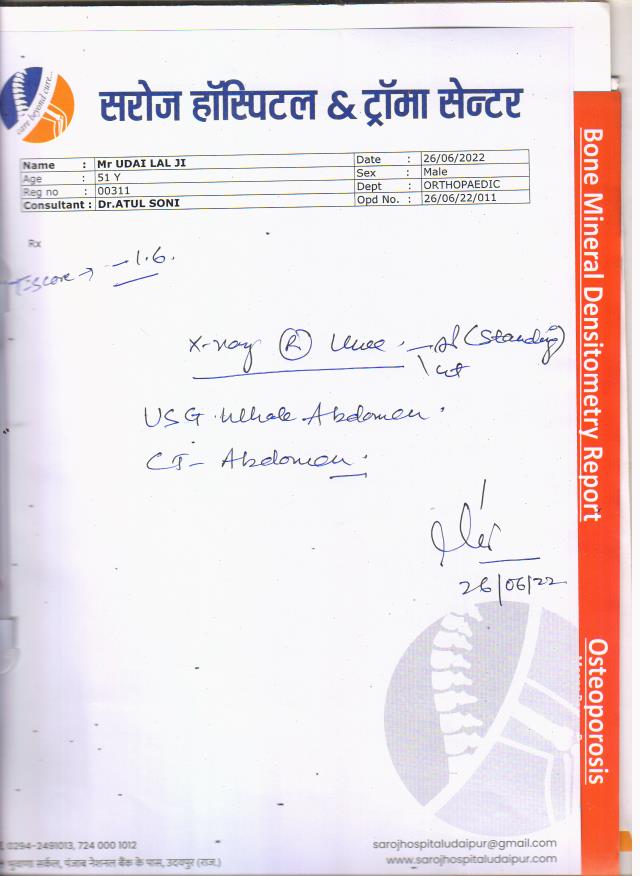 care beyond cure...
सरोज हॉस्पिटल & ट्रॉमा सेन्टर
Name : Mr UDAI LAL JI Date : 26/06/2022
Age : 51 Y Sex : Male
Reg no : 00311 Dept : ORTHOPAEDIC
Consultant : Dr.ATUL SONI Opd No. : 26/06/22/011
Rx
T-score → -1.6.
X-ray (R) knee. - AP (Standing)
USG whole Abdomen.
CT- Abdomen.
26/06/22
Bone Mineral Densitometry Report
Osteoporosis
0294-2491013, 724 000 1012
sarojhospitaludaipur@gmail.com
भुवाणा सर्कल, पंजाब नेशनल बैंक के पास, उदयपुर (राज.)
www.sarojhospitaludaipur.com